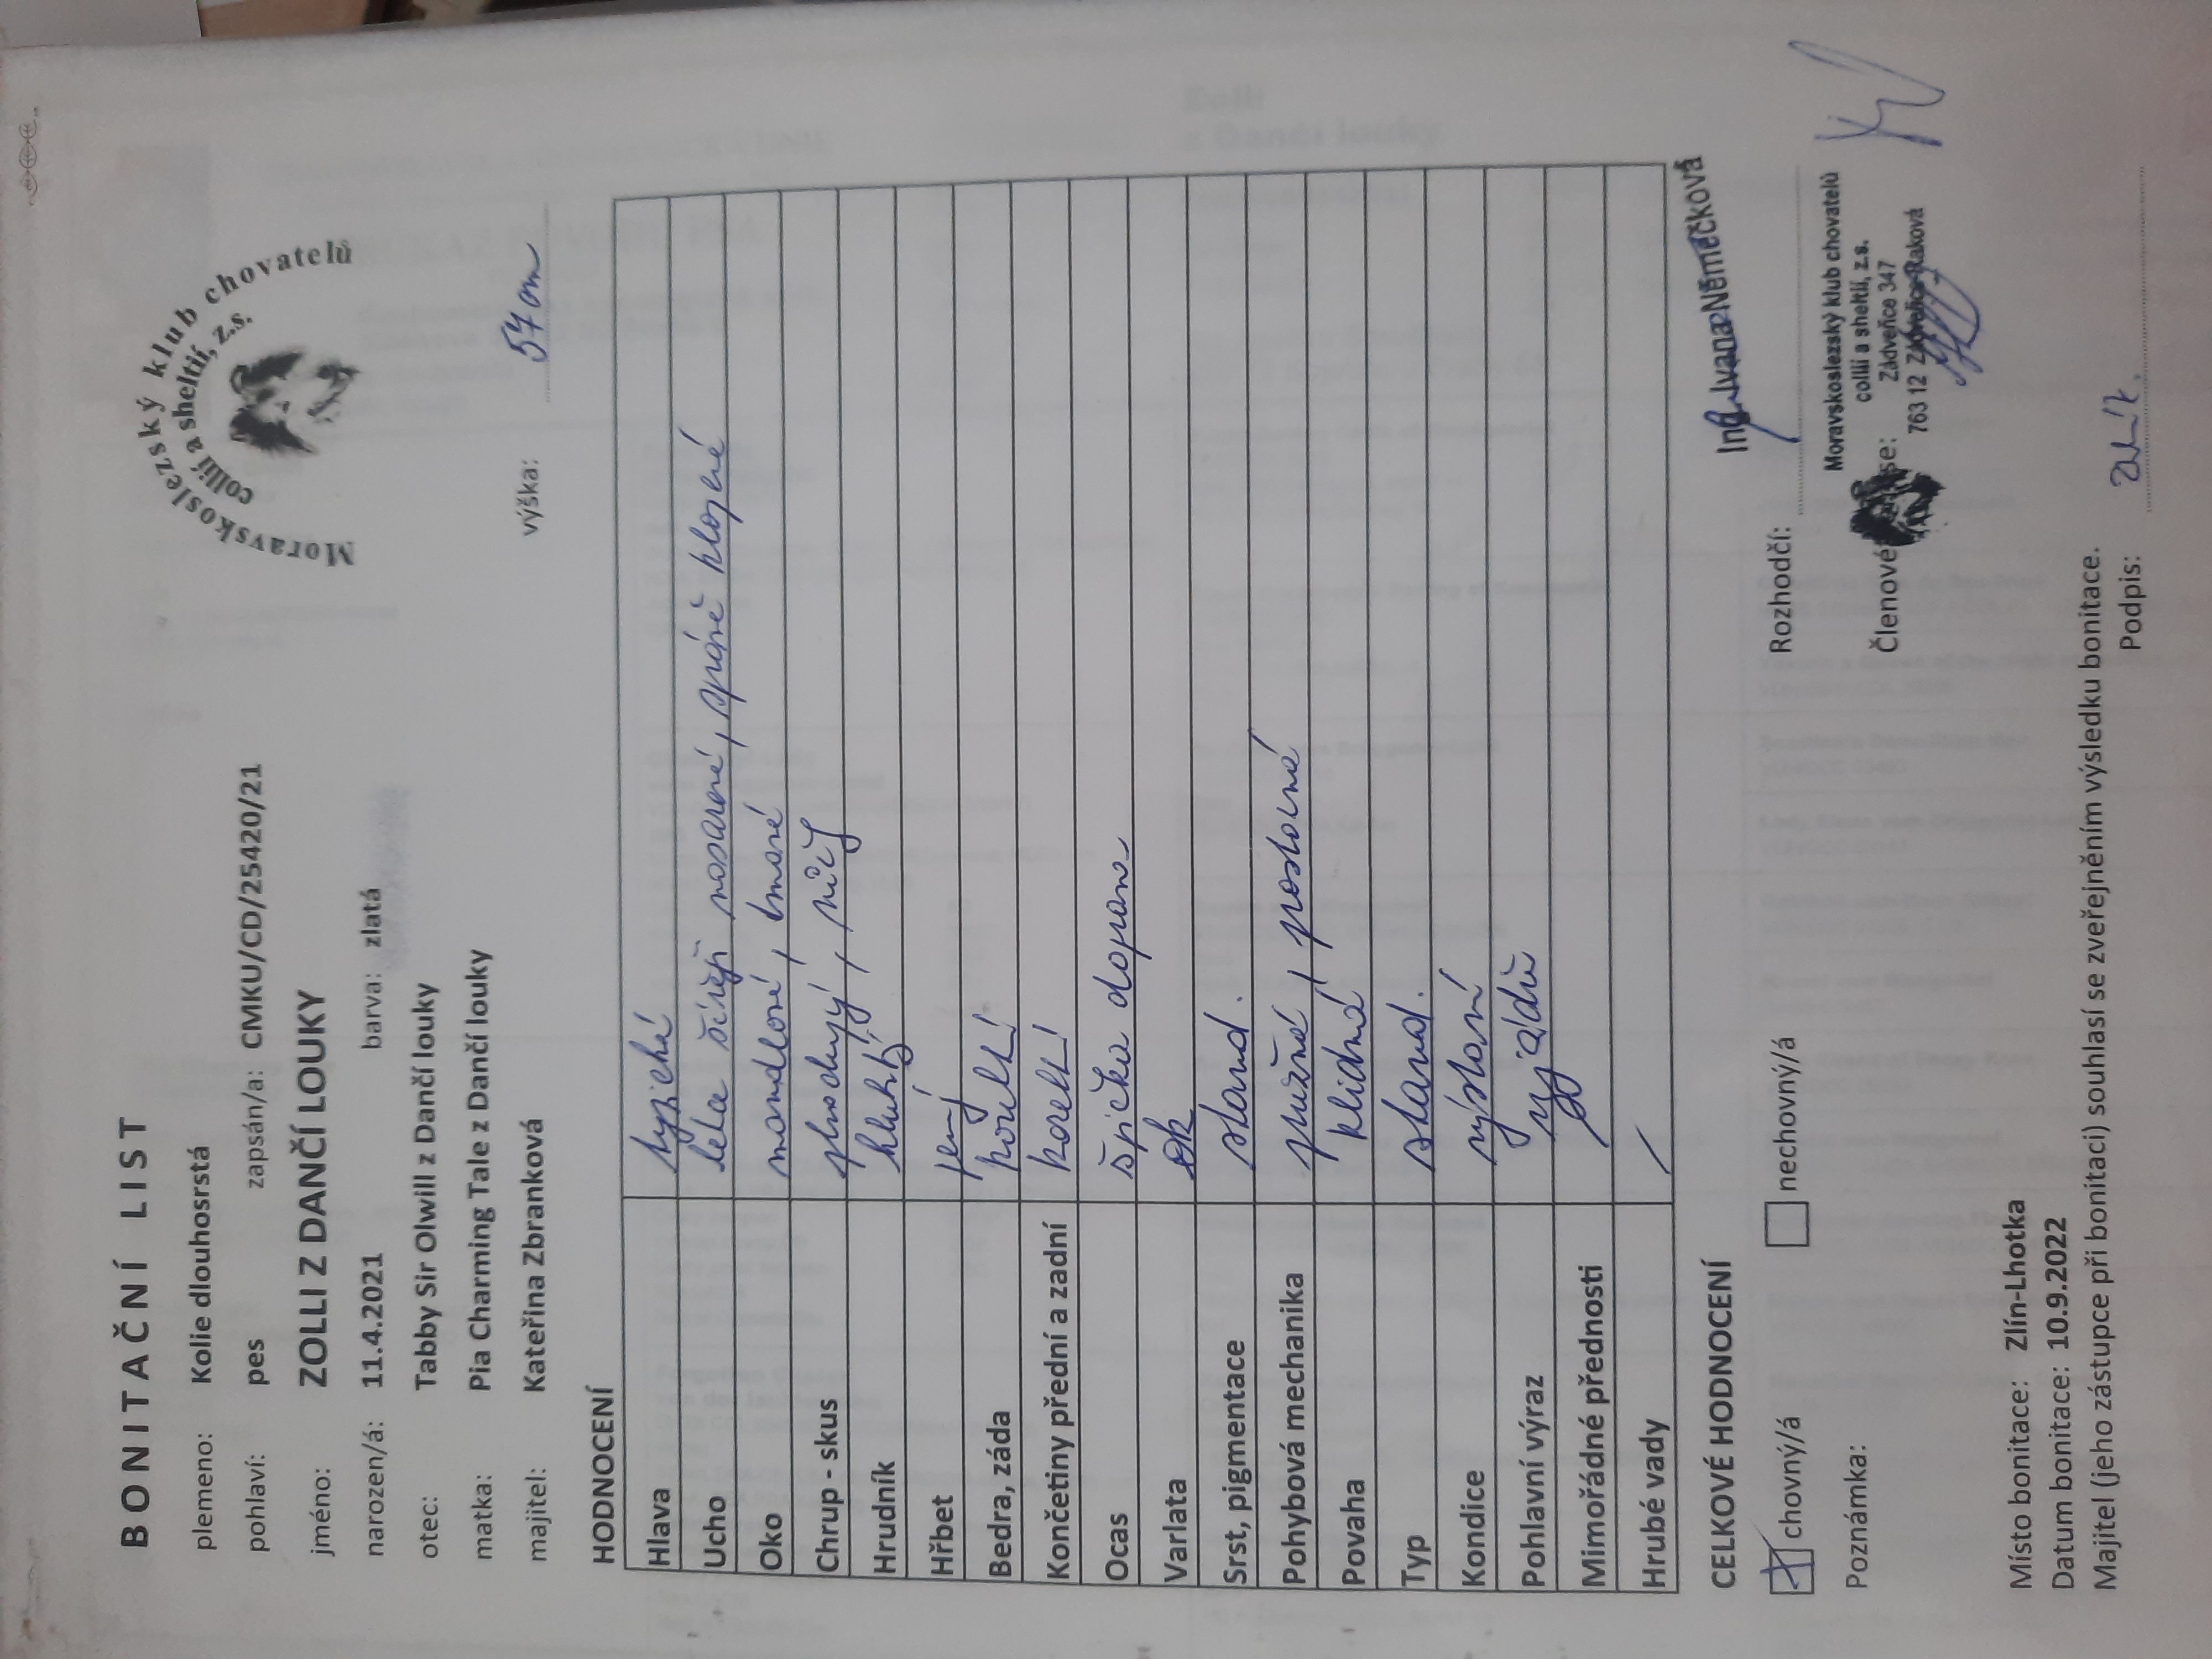 Moravskoslezský klub chovatelů
collií a sheltií, z.s.
BONITAČNÍ LIST
plemeno: Kolie dlouhosrstá
pohlaví: pes zapsán/a: CMKU/CD/25420/21
jméno: ZOLLI Z DANČÍ LOUKY
narozen/á: 11.4.2021 barva: zlatá
otec: Tabby Sir Olwill z Dančí louky
matka: Pia Charming Tale z Dančí louky
majitel: Kateřina Zbranková výška: 57 cm
HODNOCENÍ
Hlava typická
Ucho lehce šířeji nasazené, správě klopené
Oko mandlové, tmavé
Chrup - skus plnochrupý, nůžk
Hrudník hluboký
Hřbet pevný
Bedra, záda korektní
Končetiny přední a zadní korektní
Ocas špička doprava
Varlata ok
Srst, pigmentace stand.
Pohybová mechanika pružná, prostorná
Povaha klidná
Typ stand.
Kondice výstavní
Pohlavní výraz vyjádř
Mimořádné přednosti
Hrubé vady /
CELKOVÉ HODNOCENÍ
chovný/á nechovný/á
Rozhodčí: Ing. Ivana Němečková
Poznámka:
Členové se:
Moravskoslezský klub chovatelů
collií a sheltií, z.s.
Zádveřice 347
763 12 Zádveřice-Raková
Místo bonitace: Zlín-Lhotka
Datum bonitace: 10.9.2022
Majitel (jeho zástupce při bonitaci) souhlasí se zveřejněním výsledku bonitace.
Podpis: